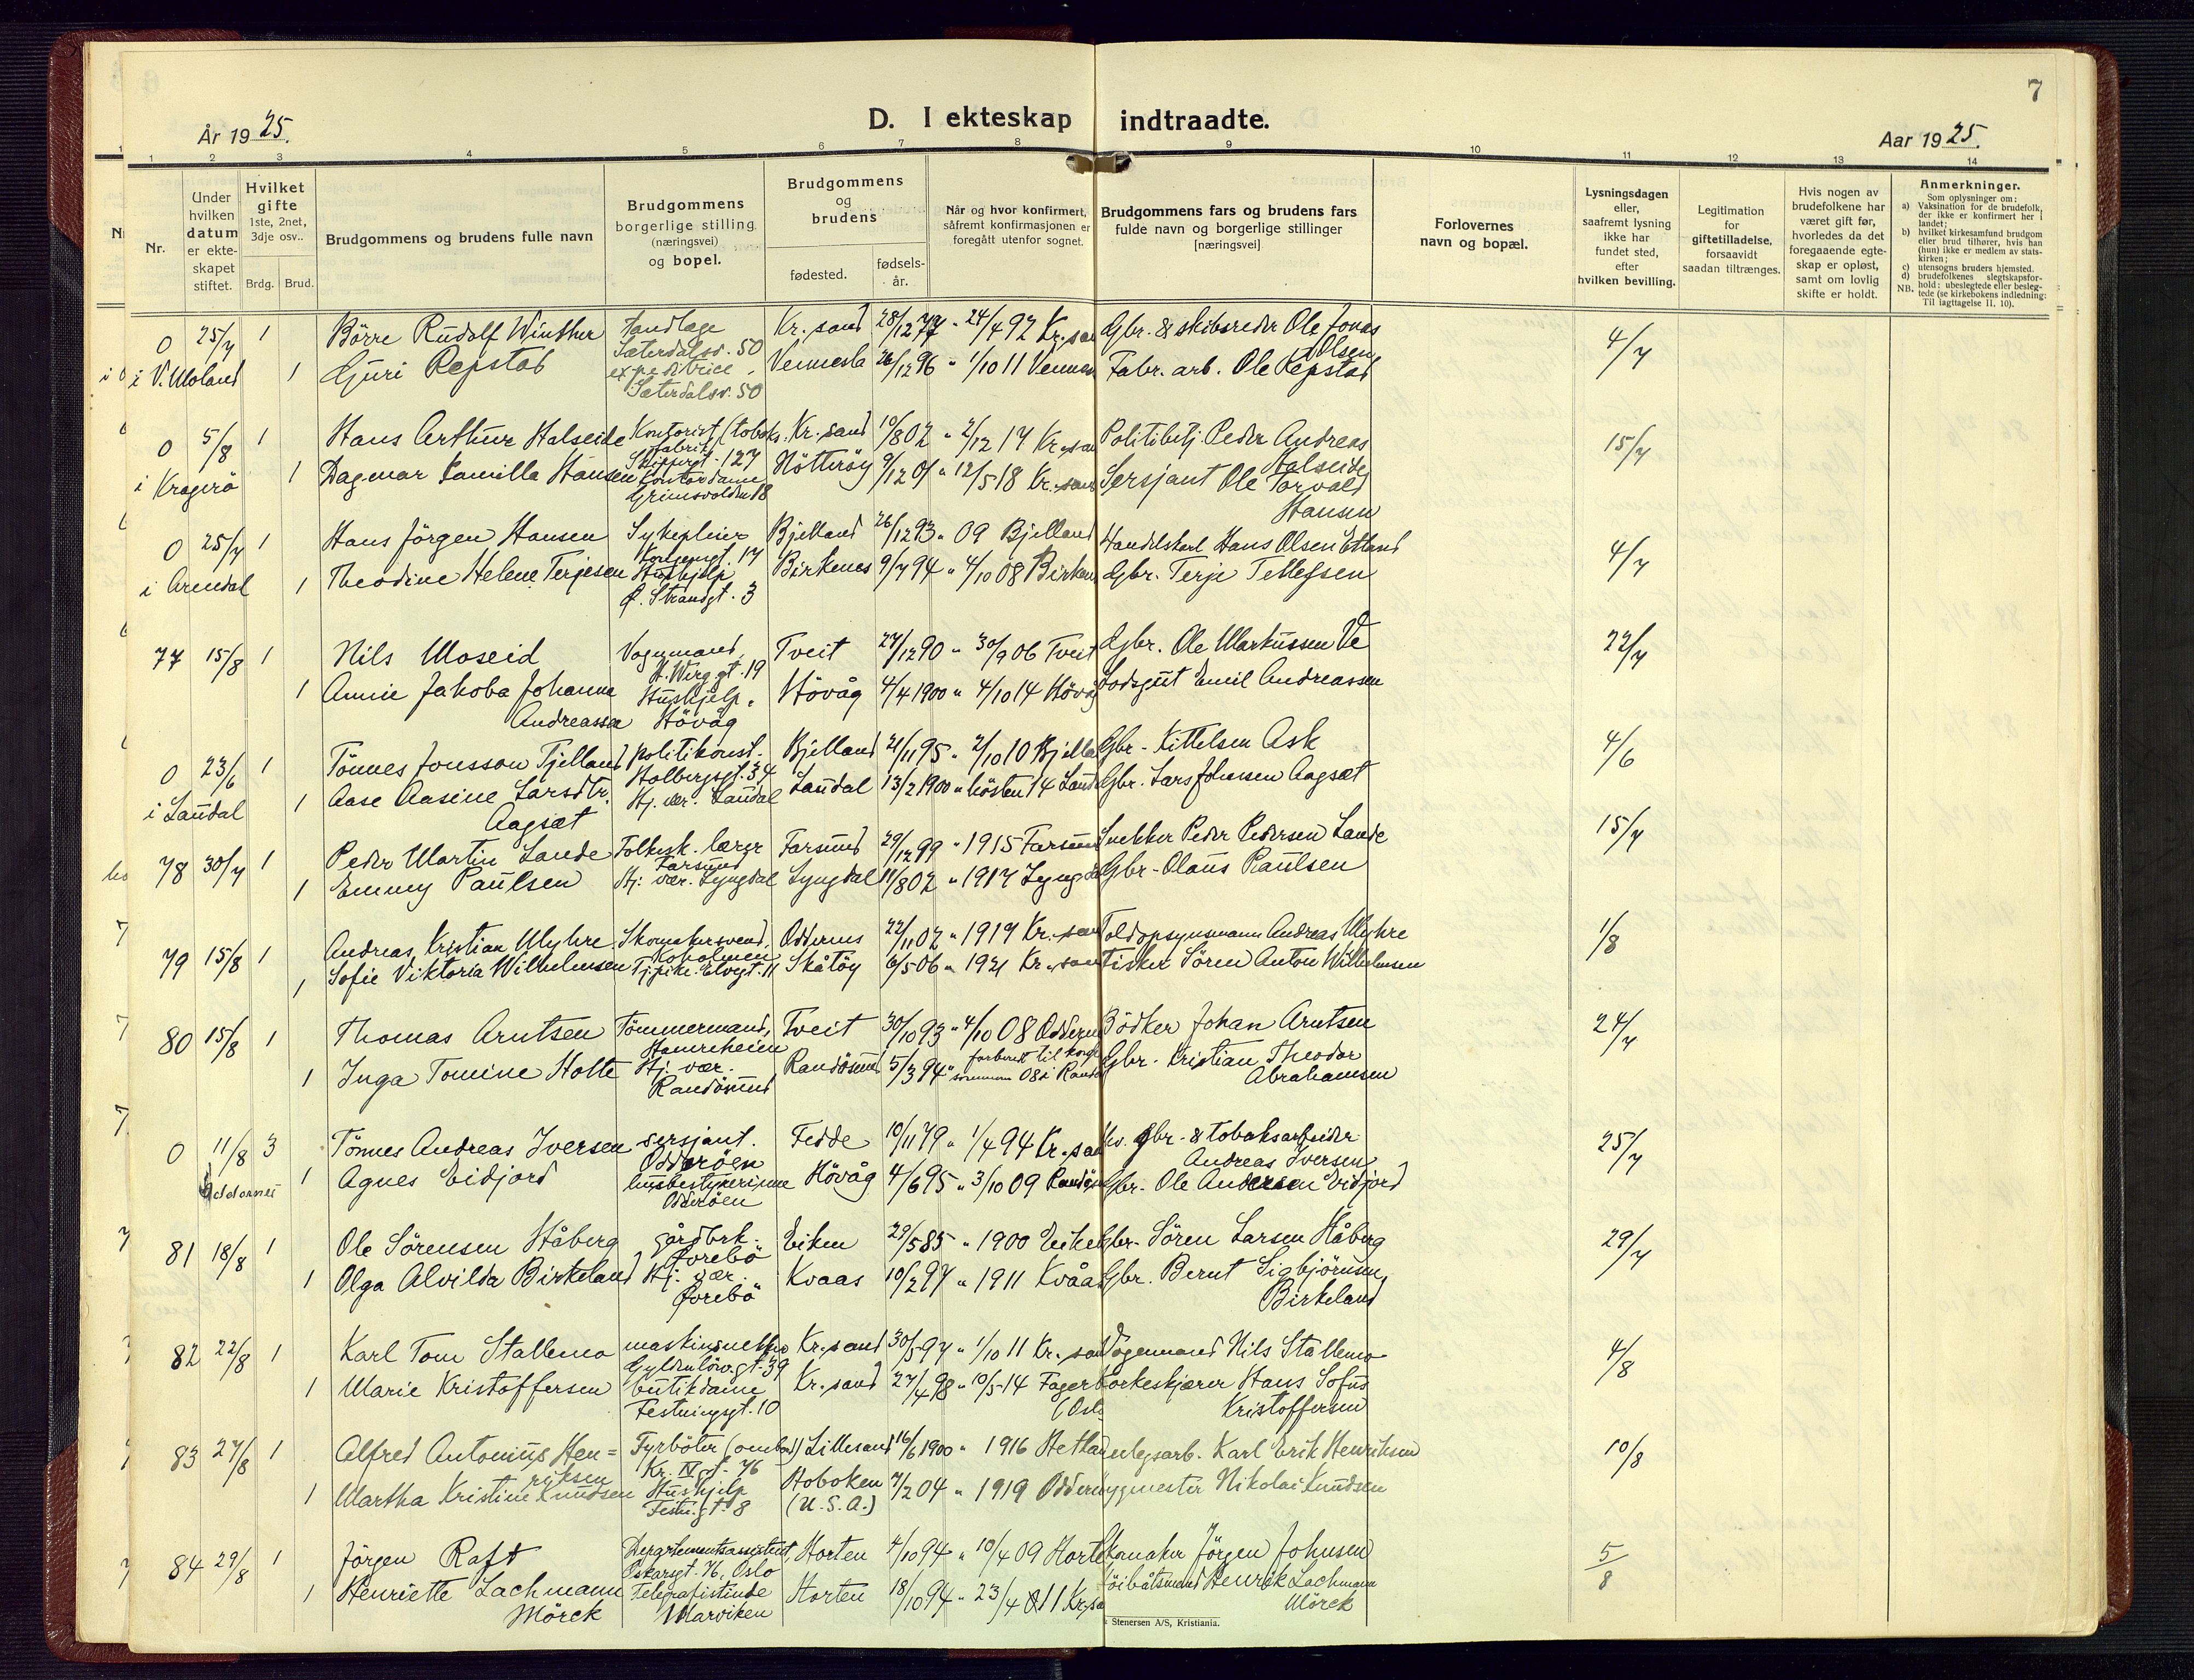 7
D. I ekteskap indtraadte.
År 1925.
Aar 1925.
1 2 3 4 5 6 7 8 9 10 11 12 13 14
Nr.
Under hvilken datum er ekte-skapet stiftet.
Hvilket gifte 1ste, 2net, 3dje osv..
Brdg. Brud.
Brudgommens og brudens fulle navn
Brudgommens borgerlige stilling (næringsvei) og bopel.
Brudgommens og brudens
fødested.
fødsels-år.
Når og hvor konfirmert, såfremt konfirmasjonen er foregått utenfor sognet.
Brudgommens fars og brudens fars fulde navn og borgerlige stillinger [næringsvei]
Forlovernes navn og bopæl.
Lysningsdagen eller, saafremt lysning ikke har fundet sted, efter hvilken bevilling.
Legitimation for giftetilladelse, forsaavidt saadan tiltrænges.
Hvis nogen av brudefolkene har været gift før, hvorledes da det foregaaende egte-skap er opløst, samt om lovlig skifte er holdt.
Anmerkninger.
Som oplysninger om:
a) Vaksination for de brudefolk, der ikke er konfirmert her i landet;
b) hvilket kirkesamfund brudgom eller brud tilhører, hvis han (hun) ikke er medlem av stats-kirken;
c) utensogns bruders hjemsted.
d) brudefolkenes slegtskapsfor-hold: ubeslegtede eller besleg-tede (se kirkebokens indledning:
NB. Til iagttagelse II, 10).
0 25/7 1 Börre Rudolf Winther Kr. sand 24/4 92 Kr. sa Gbr. & skibsreder Ole Jonas Olsen 4/7
Sæterdalsv. 50
i V. Moland 1 Guri Repstad expeditrice Vennesla 26/12 96 " 1/10 11 Vennes Fabr. arb. Ole Repstad
Sæterdalsv. 50
0 5/8 1 Hans Arthur Halseide Kontorist (tobaks. Kr. sand 10/8 02 " 2/12 17 Kr. sa Politibetj. Peder Andreas Halseide 15/7
fabrik
Skippergt. 127
i Kragerö 1 Dagmar Kamilla Hansen Kontordame Nötteröy 9/12 01 " 12/5 18 Kr. sand Sersjant Ole Torvald Hansen
Grimsvolden 18
0 25/7 1 Hans Jörgen Hansen Sykepleier Bjelland 26/12 93 " 09 Bjelland Handelskarl Hans Olsen Etland 4/7
i Arendal 1 Theodine Helene Terjesen Hushjelp Birkenes 9/7 94 " 4/10 08 Birken Gbr. Terje Tellefsen
Ø. Strandgt. 3
77 15/8 1 Nils Moseid Vognmand, Tveit 27/12 90 " 30/9 06 Tveit Gbr. Ole Markussen Ve 22/7
H. Wirg gt. 19
1 Annie Jakoba Johanne Andreassen Hushjelp, Hövåg Hövåg 4/4 1900 " 4/10 14 Hövåg Lodsgut Emil Andreassen
0 23/6 1 Tönnes Jonsson Tjelland politikonst. Bjelland 21/11 95 " 2/10 10 Bjella Gbr. Kittelsen Ask 4/6
Holbergsgt. 34
i Laudal 1 Aase Aasine Larsdtr. Aagsæt Hj. vær. Laudal Laudal 13/2 1900 " hösten 14 Laud Gbr. Lars Johnsen Aagsæt
78 30/7 1 Peder Martin Lande Folkesk. lærer Farsund Farsund 29/12 99 " 1915 Farsund Snekker Peder Pedersen Lande 15/7
1 Emmy Paulsen Hj. vær. Lyngdal Lyngdal 11/8 02 " 1917 Lyngd Gbr. Olaus Paulsen
79 15/8 1 Andreas Kristian Myhre Skomakersvend, Oddernes 22/11 02 " 1917 Kr. san Toldopsynsmann Andreas Myhre 1/8
1 Sofie Viktoria Wilhelmsen Tj.pike. Elvegt. 11 Skåtöy 6/5 06 " 1921 Kr. san Fisker Sören Anton Wilhelmsen
80 15/8 1 Thomas Arntsen Tömmermand, Hamreheien Tveit 30/10 93 " 4/10 08 Oddern Bödker Johan Arntsen 24/7
1 Inga Tomine Holte Hj. vær. Randösund Randösund 5/3 94 " forberedt til konf. sommeren 08 i Rand Gbr. Kristian Theodor Abrahamsen
0 11/8 3 Tönnes Andreas Iversen sersjant. Odderöen Fedde 10/11 79 " 1/4 94 Kr. sa Gbr. & tobaksarbeider Andreas Iversen 25/7
Oddernes 1 Agnes Eidjord husbestyrerinne Odderöen Hövåg 4/6 95 " 3/10 09 Randös Gbr. Ole Andersen Eidjord
81 18/8 1 Ole Sörensen Håberg gårdbrk. Övrebö Eiken 29/5 85 " 1900 Eiken Gbr. Sören Larsen Håberg 29/7
1 Olga Alvilda Birkeland Hj. vær. Övrebö Kvaas 10/2 97 " 1911 Kvåas Gbr. Bernt Sigbjörnsen Birkeland
82 22/8 1 Karl Tom Stallemo Kr. sand 30/5 97 " 1/10 11 Kr. san Vognmand Nils Stallemo 4/8
Gyldenlöw. gt. 39
1 Marie Kristoffersen butikdame Kr. sand 27/4 98 " 10/5 14 Fagerb (Osl Korkeskjærer Hans Sofus Kristoffersen
Festningsgt. 10
83 27/8 1 Alfred Antonius Hen=riksen Fyrböter (ombord) Lillesand 16/6 1900 " 1916 Hetla Karl Erik Henriksen 10/8
Kr. IV gt. 76
1 Martha Kristine Knudsen Hushjelp Hoboken (U.S.A.) 7/2 04 " 1919 Oddern Bygmester Nikolai Knudsen
Festn.gt. 8
84 29/8 1 Jörgen Raft Departementsassistent, Horten 4/10 94 " 10/4 09 Horte Skomaker Jörgen Johnsen 5/8
Oskarsgt. 76, Oslo
1 Henriette Lachmann Mörck Telegrafistinde Marviken Horten 18/10 94 " 23/4 11 Kr. sa Henrik Lachmann Mörck
Stenersen A/S, Kristiania.